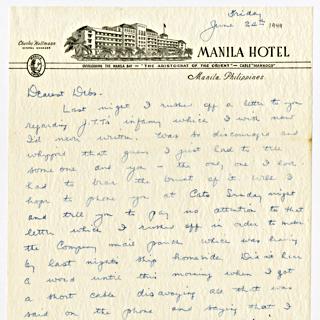 Friday
June 24th 1949
Charles Hoffmann
GENERAL MANAGER
MANILA HOTEL
OVERLOOKING THE MANILA BAY — "THE ARISTOCRAT OF THE ORIENT" — CABLE "MANHOCO"
Manila Philippines
Dearest Debs.
Last night I rushed off a letter to you
regarding J.T.T's infamy which I wish now
I'd never written. Was so discouraged and
whipped that guess I just had to tell
some one and you - the one, one I love,
had to bear the brunt of it. Well I
hope to phone you at Cats Sunday night
and tell you to pay no attention to that
letter which I rushed off in order to make
the Company mail pouch which was leaving
by last nights ship homeside. Didn't hear
a word until this morning when I got
a short cable disavowing all that was
said on the phone and saying that I